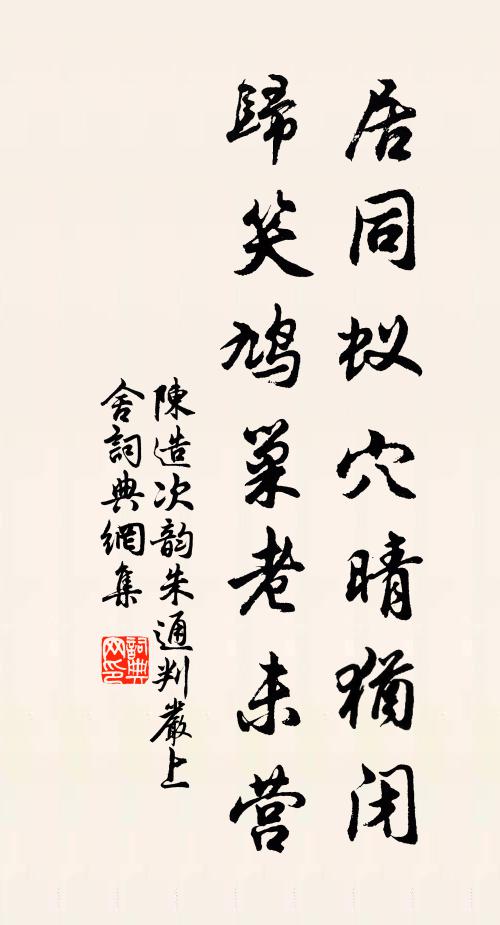 居同蚁穴晴猶闭
歸笑鳩巢老未营
陳造次韵朱通判嚴上
舍詞典網集
詞典
网印